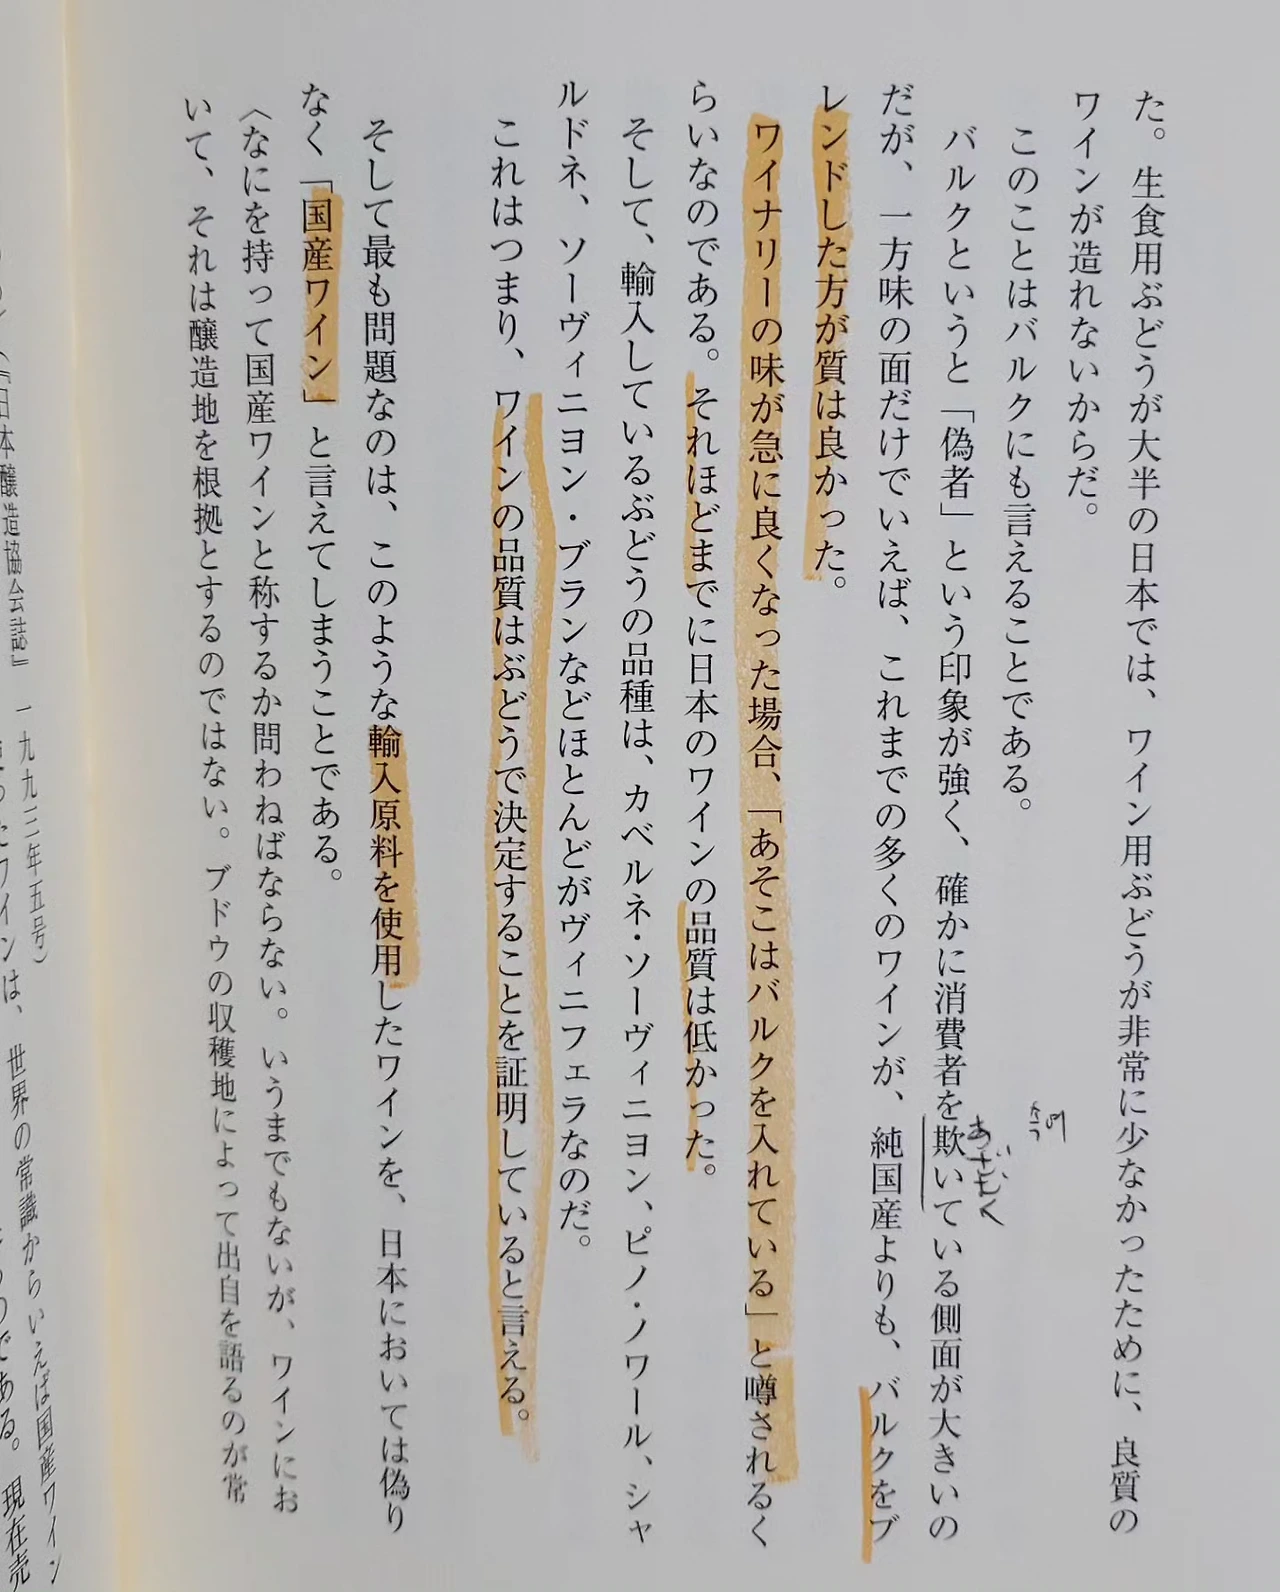 た。生食用ぶどうが大半の日本では、ワイン用ぶどうが非常に少なかったために、良質の
ワインが造れないからだ。
このことはバルクにも言えることである。
バルクというと「偽者」という印象が強く、確かに消費者を欺いている側面が大きいの
あざむく
だが、一方味の面だけでいえば、これまでの多くのワインが、純国産よりも、バルクをブ
レンドした方が質は良かった。
ワイナリーの味が急に良くなった場合、「あそこはバルクを入れている」と噂されるく
らいなのである。それほどまでに日本のワインの品質は低かった。
そして、輸入しているぶどうの品種は、カベルネ・ソーヴィニヨン、ピノ・ノワール、シャ
ルドネ、ソーヴィニヨン・ブランなどほとんどがヴィニフェラなのだ。
これはつまり、ワインの品質はぶどうで決定することを証明していると言える。
そして最も問題なのは、このような輸入原料を使用したワインを、日本においては偽り
なく「国産ワイン」と言えてしまうことである。
〈なにを持って国産ワインと称するか問わねばならない。いうまでもないが、ワインにお
いて、それは醸造地を根拠とするのではない。ブドウの収穫地によって出自を語るのが常
世界の常識からいえば国産ワイン
である。現在売
（『日本醸造協会誌』一九九三年五号）